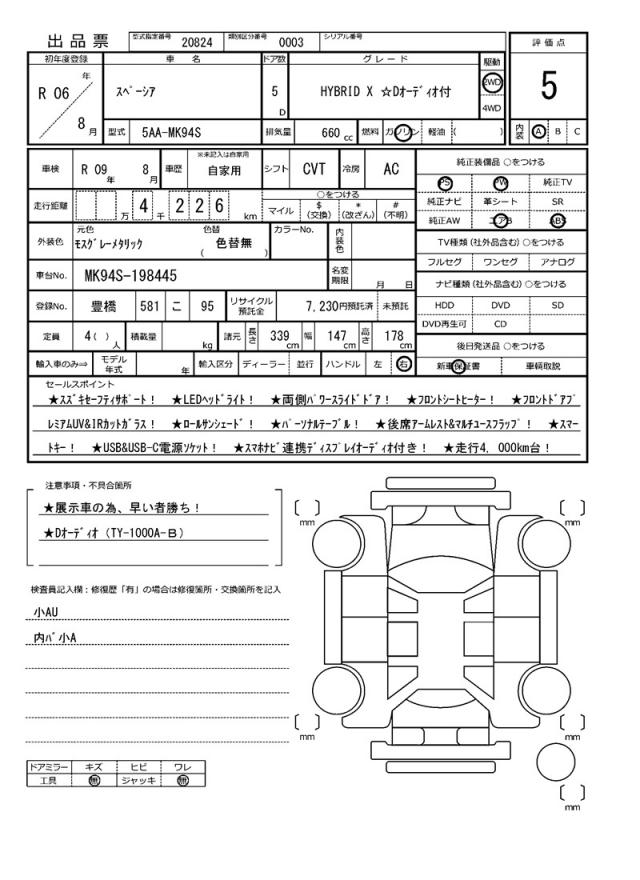 出品票 型式指定番号 20824 類別区分番号 0003 シリアル番号
初年度登録 車名 ドア数 グレード 駆動 評価点
R 06 年 8 月 スペーシア 5 D HYBRID X ☆Dオーディオ付 2WD 4WD 5
型式 5AA-MK94S 排気量 660 cc 燃料 ガソリン 軽油 ( ) 内装 A B C
車検 R 09 年 8 月 車歴 ※未記入は自家用 自家用 シフト CVT 冷房 AC 純正装備品 ○をつける
PS PW 純正TV
走行距離 万 4 千 2 2 6 km ○をつける マイル $ (交換) * (改ざん) # (不明) 純正ナビ 革シート SR
純正AW エアB ABS
外装色 元色 モスグレーメタリック 色替 ( 色替無 ) カラーNo. 内装色 TV種類 (社外品含む) ○をつける
フルセグ ワンセグ アナログ
車台No. MK94S-198445 名変期限 月 日 ナビ種類 (社外品含む) ○をつける
登録No. 豊橋 581 こ 95 リサイクル預託金 7,230円預託済 未預託 HDD DVD SD
DVD再生可 CD
定員 4 ( ) 人 積載量 kg 諸元 長さ 339 cm 幅 147 cm 高さ 178 cm 後日発送品 ○をつける
輸入車のみ⇒ モデル年式 年 輸入区分 ディーラー 並行 ハンドル 左 右 新車保証書 車輌取説
セールスポイント
★スズキセーフティサポート！ ★LEDヘッドライト！ ★両側パワースライドドア！ ★フロントシートヒーター！ ★フロントドアプ
レミアムUV&IRカットガラス！ ★ロールサンシェード！ ★パーソナルテーブル！ ★後席アームレスト&マルチユースフラップ！ ★スマー
トキー！ ★USB&USB-C電源ソケット！ ★スマホナビ連携ディスプレイオーディオ付き！ ★走行4,000km台！
注意事項・不具合箇所
★展示車の為、早い者勝ち！
★Dオーディオ (TY-1000A-B)
検査員記入欄：修復歴「有」の場合は修復箇所・交換箇所を記入
小AU
内バ小A
ドアミラー キズ ヒビ ワレ
工具 無 ジャッキ 無
mm mm
mm mm
mm